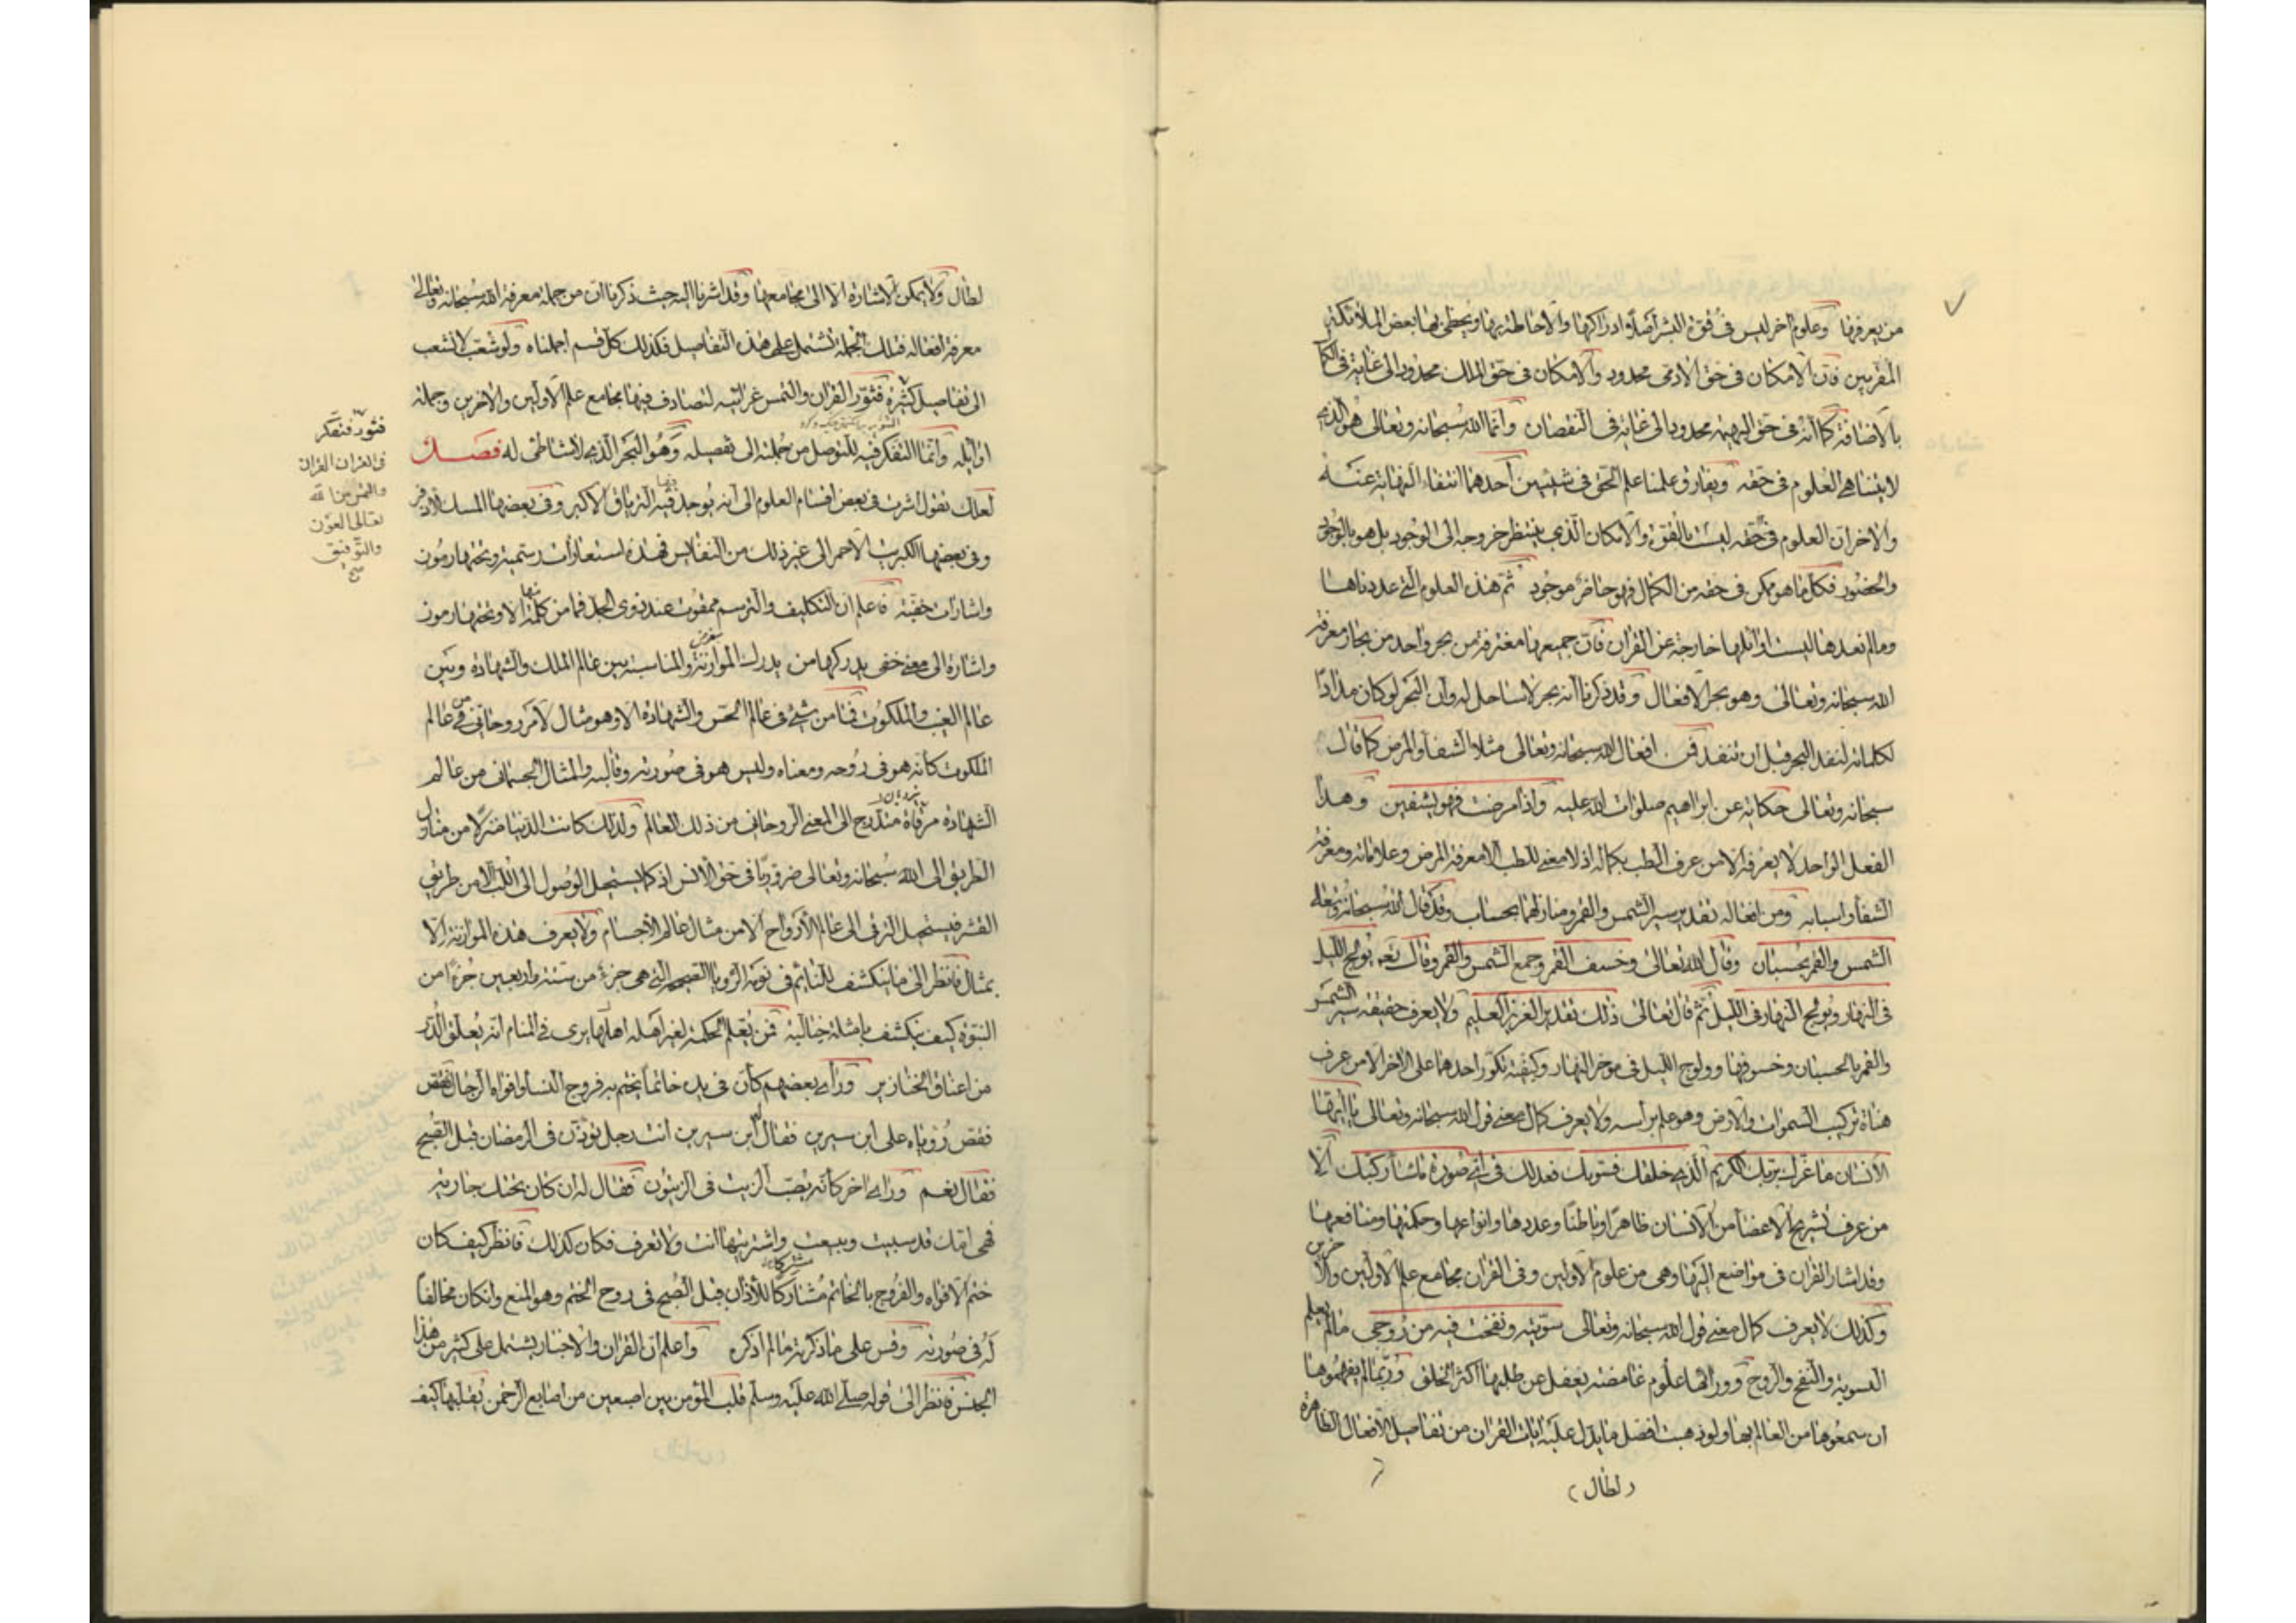 من يعرفها وعلوم اخر ليس في قوة البشر اصلا ادراكها والاحاطة بها ويحظى بها بعض الملائكة
المقربين فان الامكان في حق الادمي محدود والامكان في حق الملك محدود الى غاية في الكمال
بالاضافة كما انه في حق البهيمة محدود الى غاية في النقصان وانما الله سبحانه وتعالى هو الذي
لا يتناهى العلوم في حقه ويفارق علمنا علم الحق في شيئين احدهما انتفاء النهاية عنه
والاخر ان العلوم في حقه ليست بالقوة والامكان الذي ينتظر خروجه الى الوجود بل هو بالوجود
والحضور فكل ما هو ممكن في حقه من الكمال فهو حاضر موجود ثم هذه العلوم التي عددناها
وما لم نعدها ليست اوائلها خارجة عن القران فان جميعها مغترفة من بحر واحد من بحار معرفة
الله سبحانه وتعالى وهو بحر الافعال وقد ذكرنا انه بحر لا ساحل له وان البحر لو كان مدادا
لكلماته لنفد البحر قبل ان تنفد فمن افعال الله سبحانه وتعالى مثلا الشفا والمرض كما قال
سبحانه وتعالى حكاية عن ابراهيم صلوات الله عليه واذا مرضت فهو يشفين وهذا
الفعل الواحد لا يعرفه الا من عرف الطب بكماله اذ لا معنى للطب الا معرفة المرض وعلاماته ومعرفة
الشفا واسبابه ومن افعاله تقدير سير الشمس والقمر ومنازلهما بحساب وقد قال الله سبحانه وتعالى
الشمس والقمر بحسبان وقال الله تعالى وخسف القمر وجمع الشمس والقمر وقال تعه يولج الليل
في النهار ويولج النهار في الليل ثم قال تعالى ذلك تقدير العزيز العليم ولا يعرف حقيقة سير الشمس
والقمر بالحسبان وخسوفها وولوج الليل في موخر النهار وكيفية تكور احدهما على الاخر الا من عرف
هيأة تركيب السموات والارض وهو علم براسه ولا يعرف كمال معنى قول الله سبحانه وتعالى يا ايها
الانسان ما غرك بربك الكريم الذي خلقك فسويك فعدلك في اي صورة ما شا ركبك الا
من عرف تشريح الاعضا من الانسان ظاهرا وباطنا وعددها وانواعها وحكمتها ومنافعها
وقد اشار القران في مواضع اليها وهي من علوم الاولين وفي القران مجامع علم الاولين والاخرين
وكذلك لا يعرف كمال معنى قول الله سبحانه وتعالى سويته ونفخت فيه من روحي ما لم يعلم
التسوية والنفخ والروح وورائها علوم غامضة يغفل عن طلبها اكثر الخلق وربما لم يفهموها
ان سمعوها من العالم بها ولو ذهبت افصل ما يدل عليه ايات القران من تفاصيل الافعال الظاهرة
(لطال)
لطال ولا يمكن الاشارة الا الى مجامعها وقد اشرنا اليه حيث ذكرنا ان من جملة معرفة الله سبحانه وتعالى
معرفة افعاله فتلك الجملة تشتمل على هذه التفاصيل فكذلك كل قسم اجملناه ولو شعب لانشعب
الى تفاصيل كثيرة فثور القران والتمس غرائبه لتصادف فيها مجامع علم الاولين والاخرين وجملة
اوايله وانما التفكر فيه للتوصل من جملته الى تفصيله وهو البحر الذي لا شاطئ له فصل
لعلك تقول اشرت في بعض اقسام العلوم الى انه يوجد فيها الترياق الاكبر وفي بعضها المسك الاذفر
وفي بعضها الكبريت الاحمر الى غير ذلك من النفايس فهذه استعارات رسمية وتحتها رموز
واشارات خفية فاعلم ان التكليف والترسم ممقوت عند ذوي الجد فما من كلمة منها الا وتحتها رموز
واشارة الى معنى خفي يدركها من يدرك الموازنة والمناسبة بين عالم الملك والشهادة وبين
عالم الغيب والملكوت فما من شئ في عالم الحس والشهادة الا وهو مثال لامر روحاني من عالم
الملكوت كانه هو في روحه ومعناه وليس هو في صورته وقالبه والمثال الجسماني من عالم
الشهادة مرقاة مندرج الى المعنى الروحاني من ذلك العالم ولذلك كانت الدنيا منزلا من منازل
الطريق الى الله سبحانه وتعالى ضروريا في حق الانس اذ كما يستحيل الوصول الى اللب الا من طريق
القشر فيستحيل الترقي الى عالم الارواح الا من مثال عالم الاجسام ولا يعرف هذه الموازنة الا
بمثال فانظر الى ما ينكشف للنائم في نومه الرؤيا الصحيحة التي هي جزء من ستة واربعين جزءا من
النبوة كيف ينكشف بامثلة خيالية فمن يعلم الحكمة لغير اهله اهلها يرى في المنام انه يعلق الدر
من اعناق الخنازير وراى بعضهم كان في يده خاتما يختم به فروج النسا وافواه الرجال فقص
فقص رؤياه على ابن سيرين فقال ابن سيرين انت رجل تؤذن في الرمضان قبل الصبح
فقال نعم وراى اخر كانه يصب الزيت في الزيتون فقال له ان كان تحتك جارية
فهي امك قد سبيت وبيعت واشتريتها انت ولا تعرف فكان كذلك فانظر كيف كان
ختم الافواه والفروج بالخاتم مشاركا للاذان قبل الصبح في روح الختم وهو المنع وان كان مخالفا
له في صورته وقس على ما ذكرته ما لم اذكره واعلم ان القران والاخبار يشتمل على كثير من هذا
الجنس فانظر الى قوله صلى الله عليه وسلم قلب المؤمن بين اصبعين من اصابع الرحمن يقلبها كيف
فثور فتفكر
في القران القران
والتمس من الله
تعالى العون
والتوفيق
صح